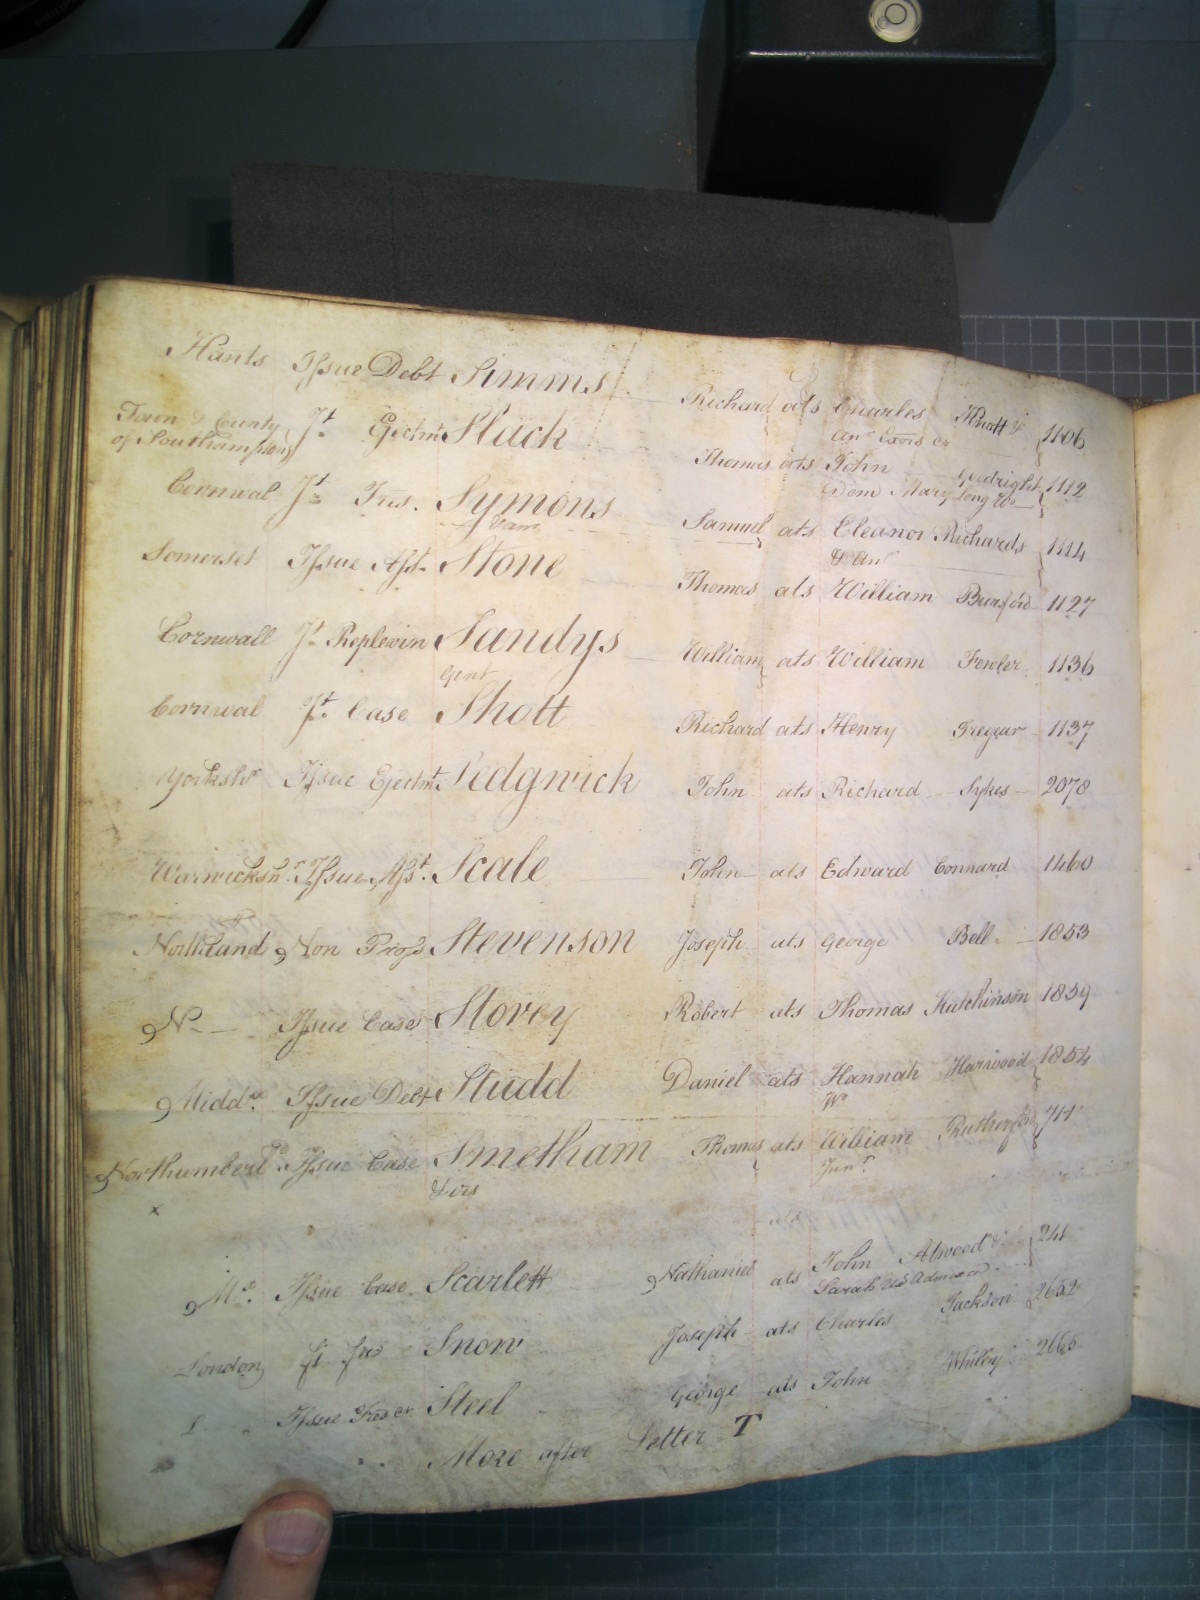 Hants Issue Debt Simms Richard ats Charles
anr Exors &c 1106
Town & County of Southampton Jt Ejectmt Slack Thomas ats John Goodright 1112
Dem Mary Long Wo
Cornwal Jt Tres. Symons Samuel ats Eleanor Richards 1114
& anr
Somerset Issue Asst. Stone Thomas ats William Burford 1127
Cornwall Jt Replevin Sandys William ats William Fowler 1136
Gent
Cornwal Jt. Case Shott Richard ats Henry Tregear 1137
Yorkshr Issue Ejectmt. Sedgwick John ats Richard Sykes 2078
Warwickshr. Issue Asst. Scale John ats Edward Connard 1460
Northland Non Pros Stevenson Joseph ats George Bell 1853
N Issue Case Storey Robert ats Thomas Hutchinson 1859
Middx. Issue Debt Studd Daniel ats Hannah Harwood 1854
Wo
Northumberld Issue Case Smetham Thomas ats William Rutherford 711
& ors Junr
x
ats
Mx. Issue Case Scarlett Nathaniel ats John Atwood & 241
Sarah Ux Admor &c
London Jt Tres Snow Joseph ats Charles Jackson 2652
L Issue Tres &c Steel George ats John Whitby 2665
More after Letter T